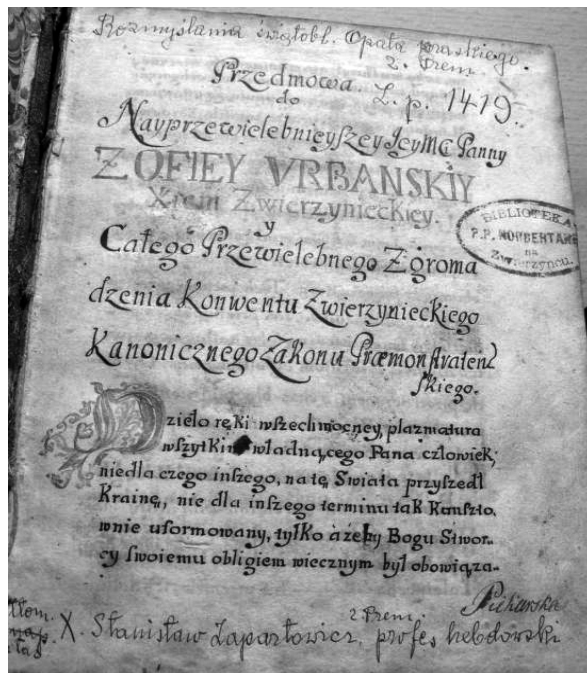 Rozmyślania świątobl. Opata pruskiego.
z. Prem
Przedmowa L. p. 1419.
do
Nayprzewielebnieyszey Jey Mć Panny
ZOFIEY VRBANSKIY
Xieni Zwierzynieckiey.
y
Całego Przewielebnego Zgroma
dzenia Konwentu Zwierzynieckiego
Kanonicznego Zakonu Præmonstrateń
skiego.
BIBLIOTEKA
P.P. NORBERTANEK
na
Zwierzyncu.
Dzieło ręki wszechmocney, plazmatura
wszytkim władnącego Pana człowiek,
niedla czego inszego, na tę Swiata przyszedł
Krainę, nie dla inszego terminu tak Kunszto,
wnie uformowany, tylko ażeby Bogu Stwor,
cy swoiemu obligiem wiecznym był obowiąza-
Piekarska
z. Prem.
X. Stanisław Zapartowicz, profes hebdowski